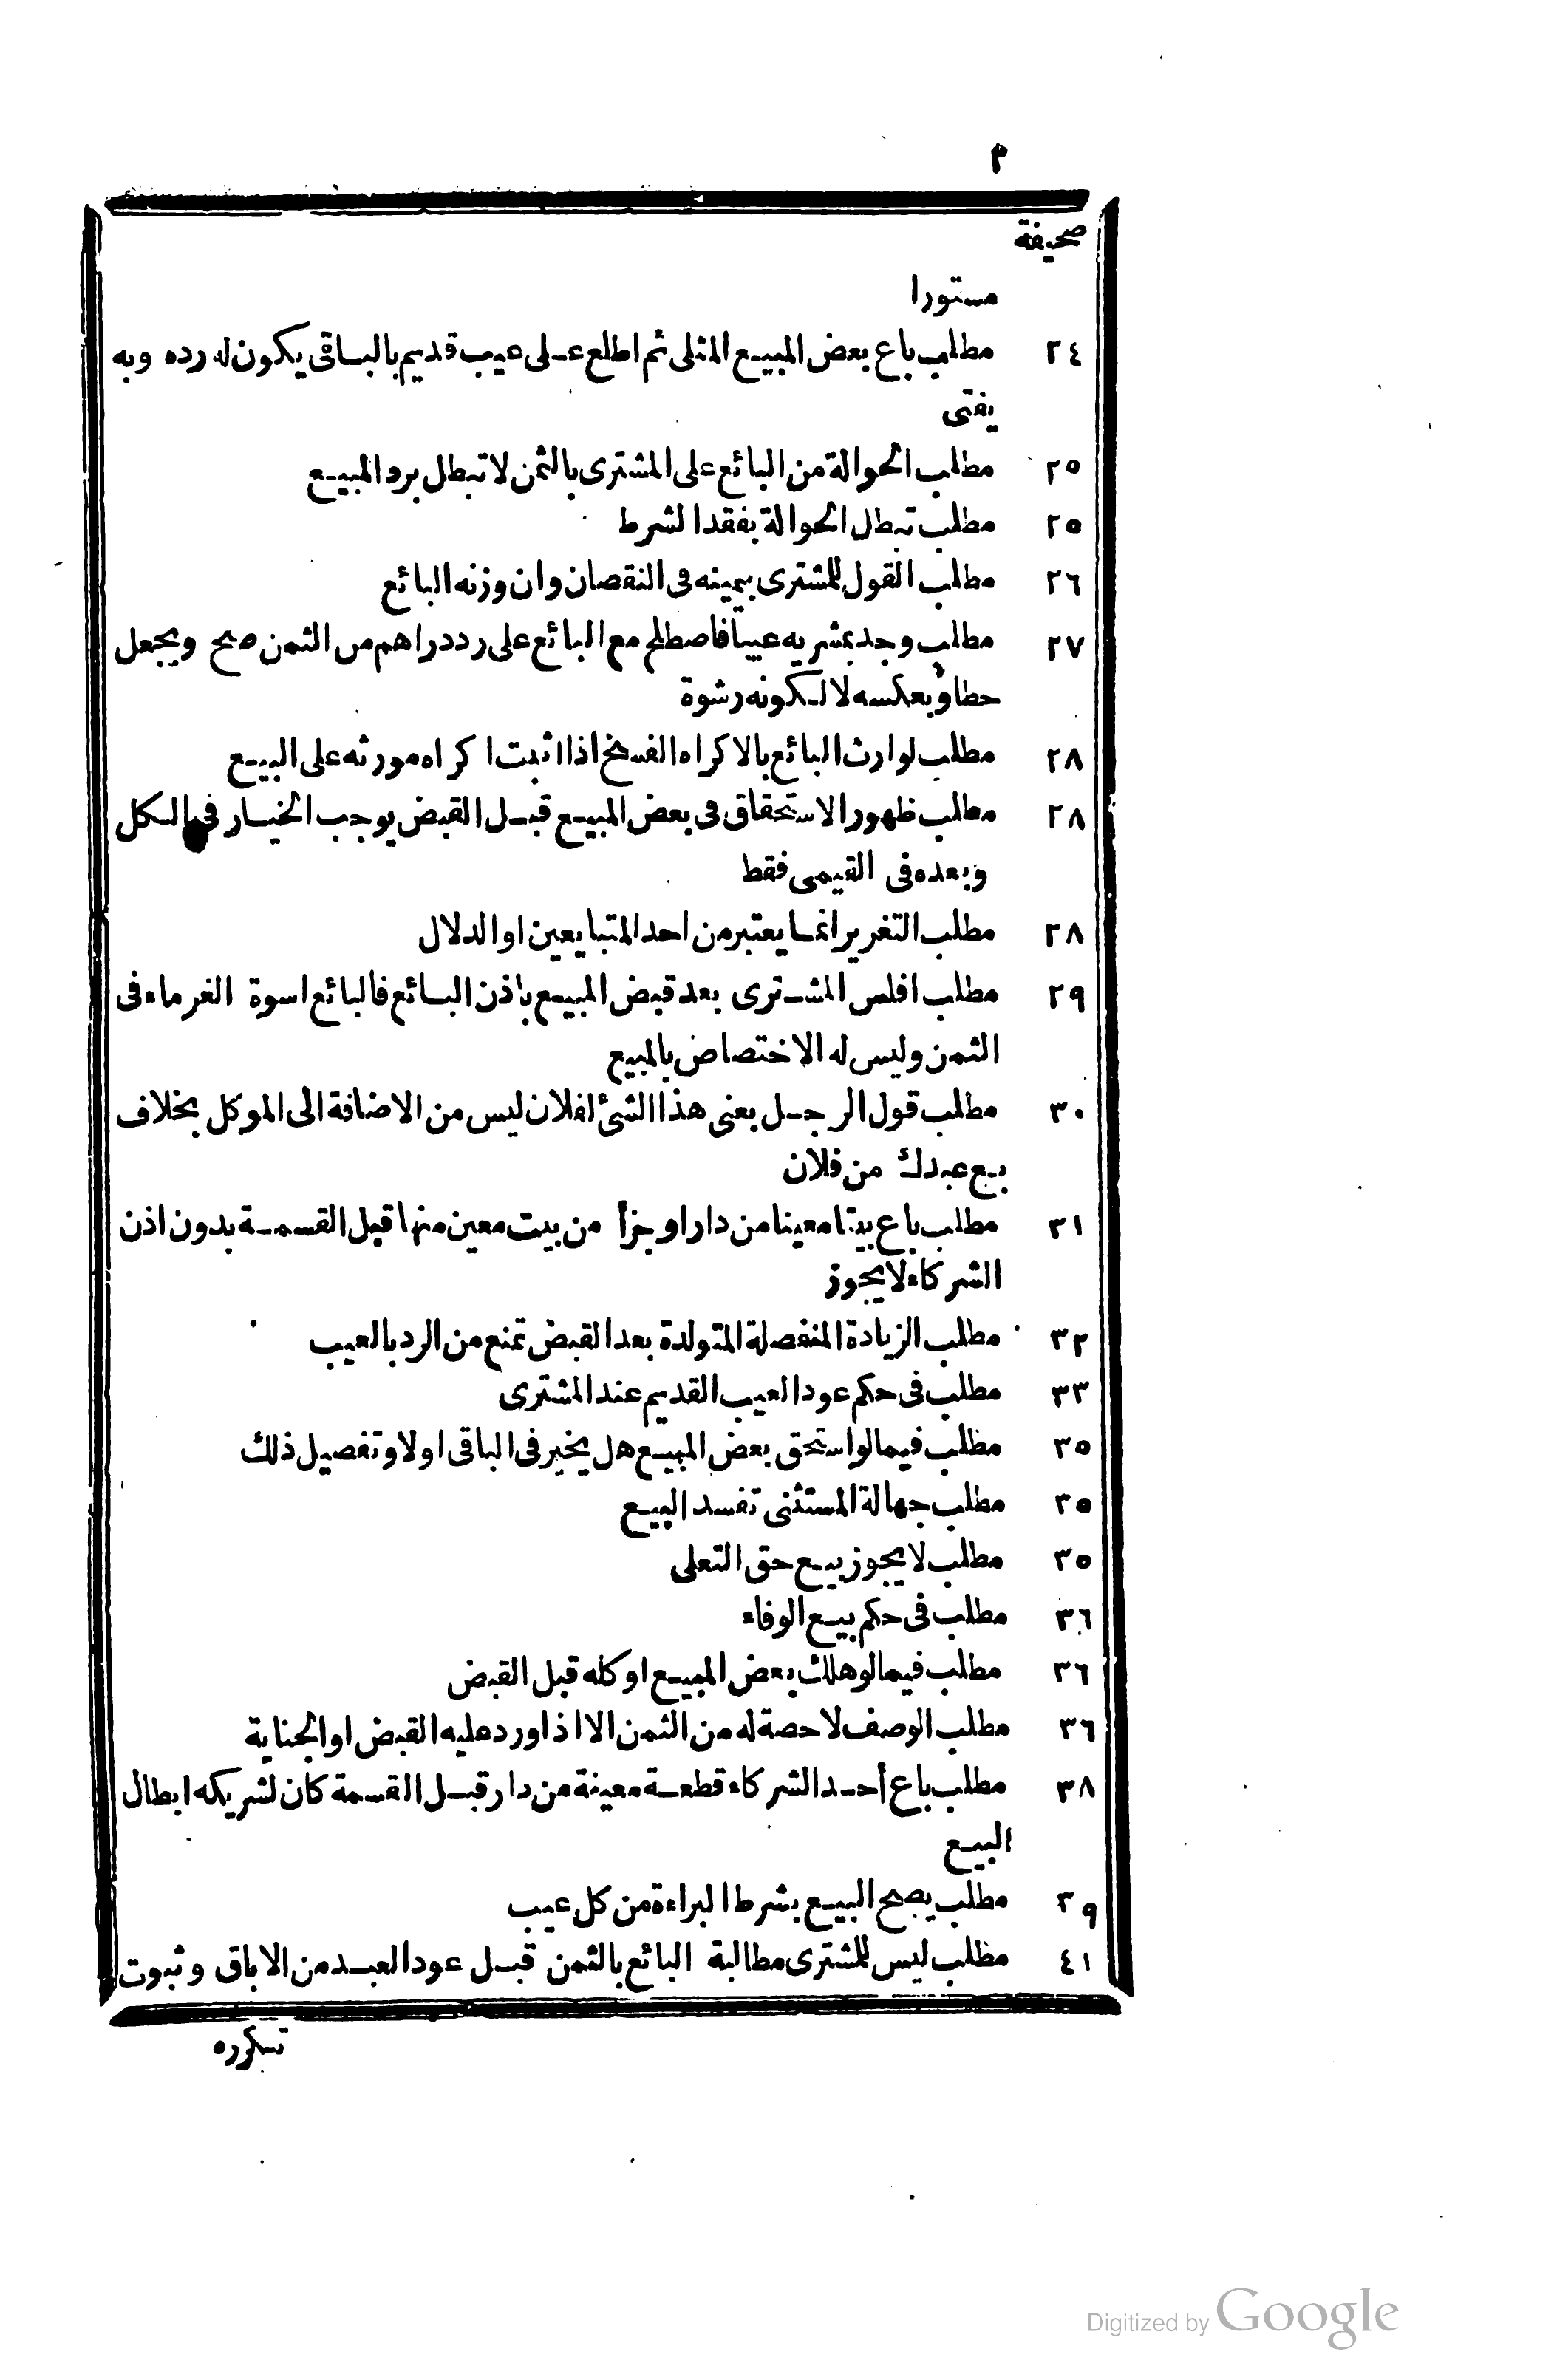 ٣
صحيفة
مستورا
٢٤ مطلب باع بعض المبيع المثلى ثم اطلع على عيب قديم بالباقى يكون له رده وبه
يفتى
٢٥ مطلب الحوالة من البائع على المشترى بالثمن لا تبطل برد المبيع
٢٥ مطلب تبطل الحوالة بفقد الشرط
٢٦ مطلب القول للمشترى بيمينه فى النقصان وان وزنه البائع
٢٧ مطلب وجد بمشريه عيبا فاصطلح مع البائع على رد دراهم من الثمن صح ويجعل
حطا وبعكسه لا لكونه رشوة
٢٨ مطلب لوارث البائع بالاكراه الفسخ اذا اثبت اكراه مورثه على البيع
٢٨ مطلب ظهور الاستحقاق فى بعض المبيع قبل القبض يوجب الخيار فى الكل
وبعده فى القيمى فقط
٢٨ مطلب التغرير انما يعتبر من احد المتبايعين او الدلال
٢٩ مطلب افلس المشترى بعد قبض المبيع باذن البائع فالبائع اسوة الغرماء فى
الثمن وليس له الاختصاص بالمبيع
٣٠ مطلب قول الرجل بعنى هذا الشئ لفلان ليس من الاضافة الى الموكل بخلاف
بع عبدك من فلان
٣١ مطلب باع بيتا معينا من دار او جزأ من بيت معين منها قبل القسمة بدون اذن
الشركاء لا يجوز
٣٢ مطلب الزيادة المنفصلة المتولدة بعد القبض تمنع من الرد بالعيب
٣٣ مطلب فى حكم عود العيب القديم عند المشترى
٣٥ مطلب فيما لو استحق بعض المبيع هل يخير فى الباقى اولا وتفصيل ذلك
٣٥ مطلب جهالة المستثنى تفسد البيع
٣٥ مطلب لا يجوز بيع حق التعلى
٣٦ مطلب فى حكم بيع الوفاء
٣٦ مطلب فيما لو هلك بعض المبيع او كله قبل القبض
٣٦ مطلب الوصف لا حصة له من الثمن الا اذا ورد عليه القبض او الجناية
٣٨ مطلب باع أحد الشركاء قطعة معينة من دار قبل القسمة كان لشريكه ابطال
البيع
٣٩ مطلب يصح البيع بشرط البراءة من كل عيب
٤١ مطلب ليس للمشترى مطالبة البائع بالثمن قبل عود العبد من الاباق وثبوت
تكرره
Digitized by Google